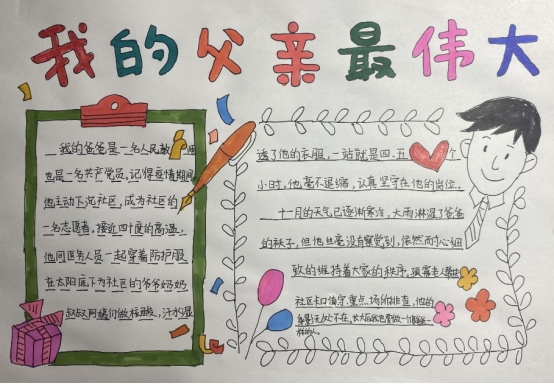 我的父亲最伟大
我的爸爸是一名人民教师
也是一名共产党员,记得疫情期间
他主动下沉社区,成为社区的
一名志愿者,接近四十度的高温,
他同医务人员一起穿着防护服
在太阳底下为社区的爷爷奶奶
叔叔阿姨们做核酸,汗水湿
透了他的衣服,一站就是四、五个
小时,他毫不退缩,认真坚守在他的岗位。
十一月的天气已逐渐寒冷,大雨淋湿了爸爸
的袜子,但他丝毫没有察觉到,依然耐心细
致的维持着大家的秩序,搀扶老人
社区卡口值守,重点场所排查,他的
身影无处不在,长大后我也要做一个像爸爸一
样的人。